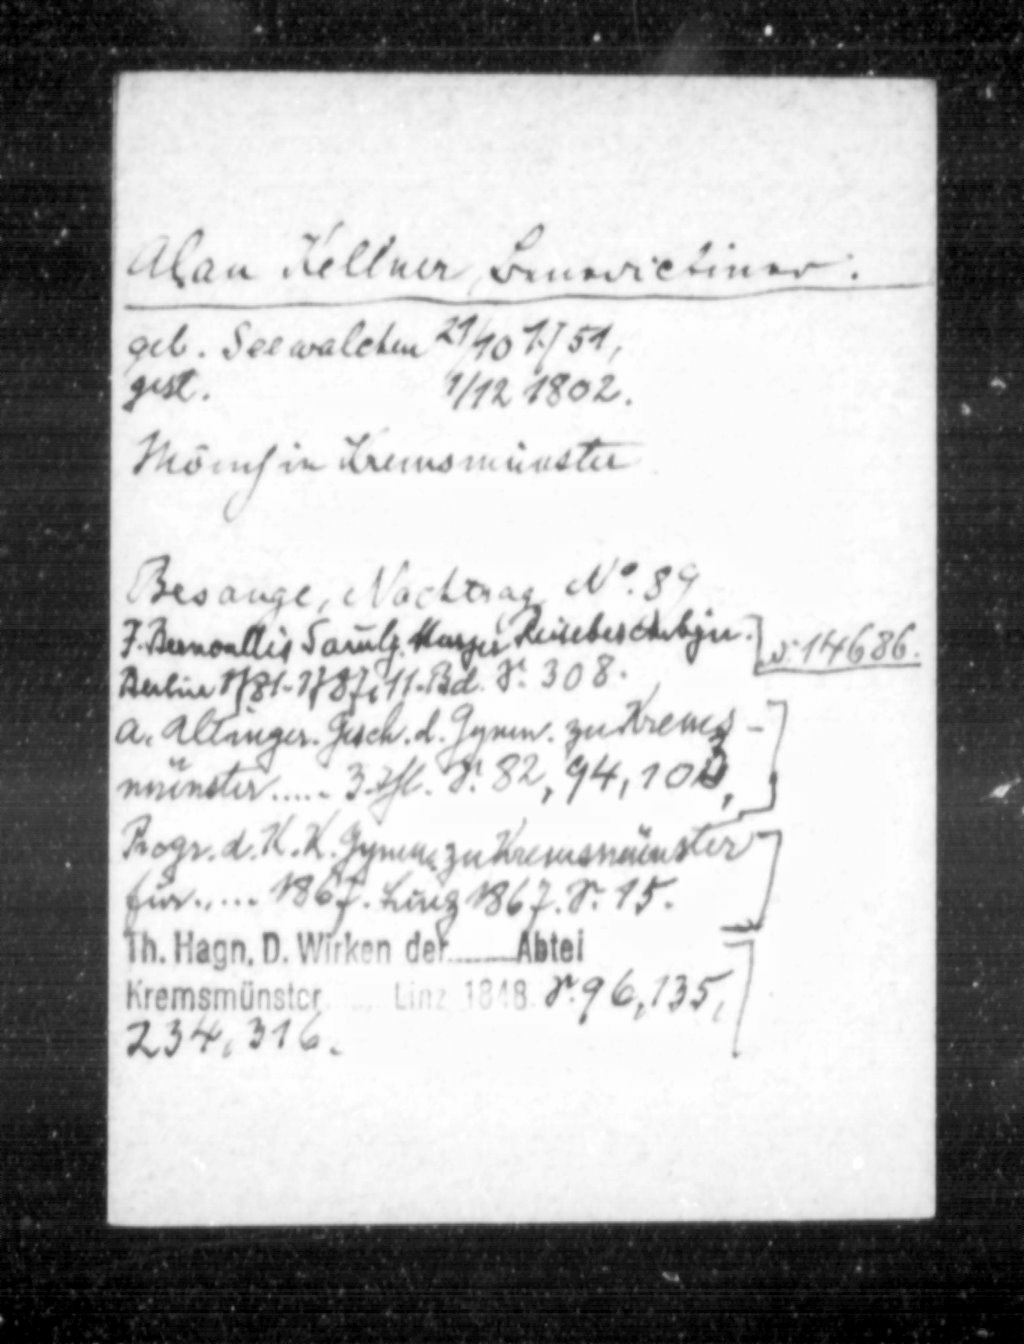 Alan Kellner, Benedictiner.
geb. Seewalchen 21/10 1751,
gest. 1/12 1802.
Mönch in Kremsmünster
Besange, Nachtrag No. 89
J. Bernoullis Samlg. Kurzer Reisebeschrbgn.
Berlin 1781-1787, 11. Bd. S. 308.
s. 14686.
A. Altinger. Gesch. d. Gymn. zu Krems-
münster ..... 3. Hft. S. 82, 94, 103,
Progr. d. K. K. Gymn. zu Kremsmünster
für ..... 1867. Linz 1867. S. 15.
Th. Hagn. D. Wirken der ........ Abtei
Kremsmünster ..... Linz 1848. S. 96, 135,
234, 316.